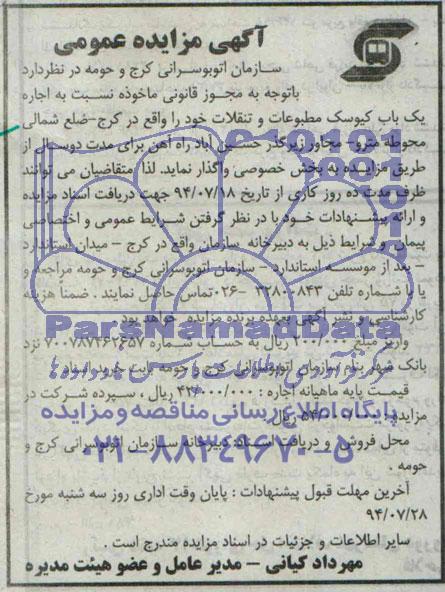 آگهی مزایده عمومی
سازمان اتوبوسرانی کرج و حومه در نظردارد
باتوجه به مجوز قانونی ماخوذه نسبت به اجاره
یک باب کیوسک مطبوعات و تنقلات خود را واقع در کرج-ضلع شمالی
محوطه مترو- مجاور زیرگذر حسین آباد راه آهن برای مدت دوسال از
طریق مزایده به بخش خصوصی واگذار نماید. لذا متقاضیان می توانند
ظرف مدت ده روز کاری از تاریخ ۹۴/۰۷/۱۸ جهت دریافت اسناد مزایده
و ارائه پیشنهادات خود با در نظر گرفتن شرایط عمومی و اختصاصی
پیمان و شرایط ذیل به دبیرخانه سازمان واقع در کرج – میدان استاندارد
– بعد از موسسه استاندارد – سازمان اتوبوسرانی کرج و حومه مراجعه و
یا با شماره تلفن ۳۲۸۰۰۸۴۳ -۰۲۶ تماس حاصل نمایند . ضمناً هزینه
کارشناسی و نشر آگهی بعهده برنده مزایده خواهد بود
واریز مبلغ ۲۰۰/۰۰۰ ریال به حساب شماره ۷۰۰۷۸۷۳۶۲۶۵۷ نزد
بانک شهر بنام سازمان اتوبوسرانی کرج و حومه بابت خرید اسناد
قیمت پایه ماهیانه اجاره : ۴۲/۰۰۰/۰۰۰ ریال ، سپرده شرکت در
مزایده ریال
محل فروش و دریافت اسناد: دبیرخانه سازمان اتوبوسرانی کرج و
حومه .
آخرین مهلت قبول پیشنهادات : پایان وقت اداری روز سه شنبه مورخ
۹۴/۰۷/۲۸
سایر اطلاعات و جزئیات در اسناد مزایده مندرج است .
مهرداد کیانی – مدیر عامل و عضو هیئت مدیره
ParsNamadData
پایگاه اطلاع رسانی مناقصه و مزایده
۰۲۱-۸۸۳۴۹۶۷۰-۵